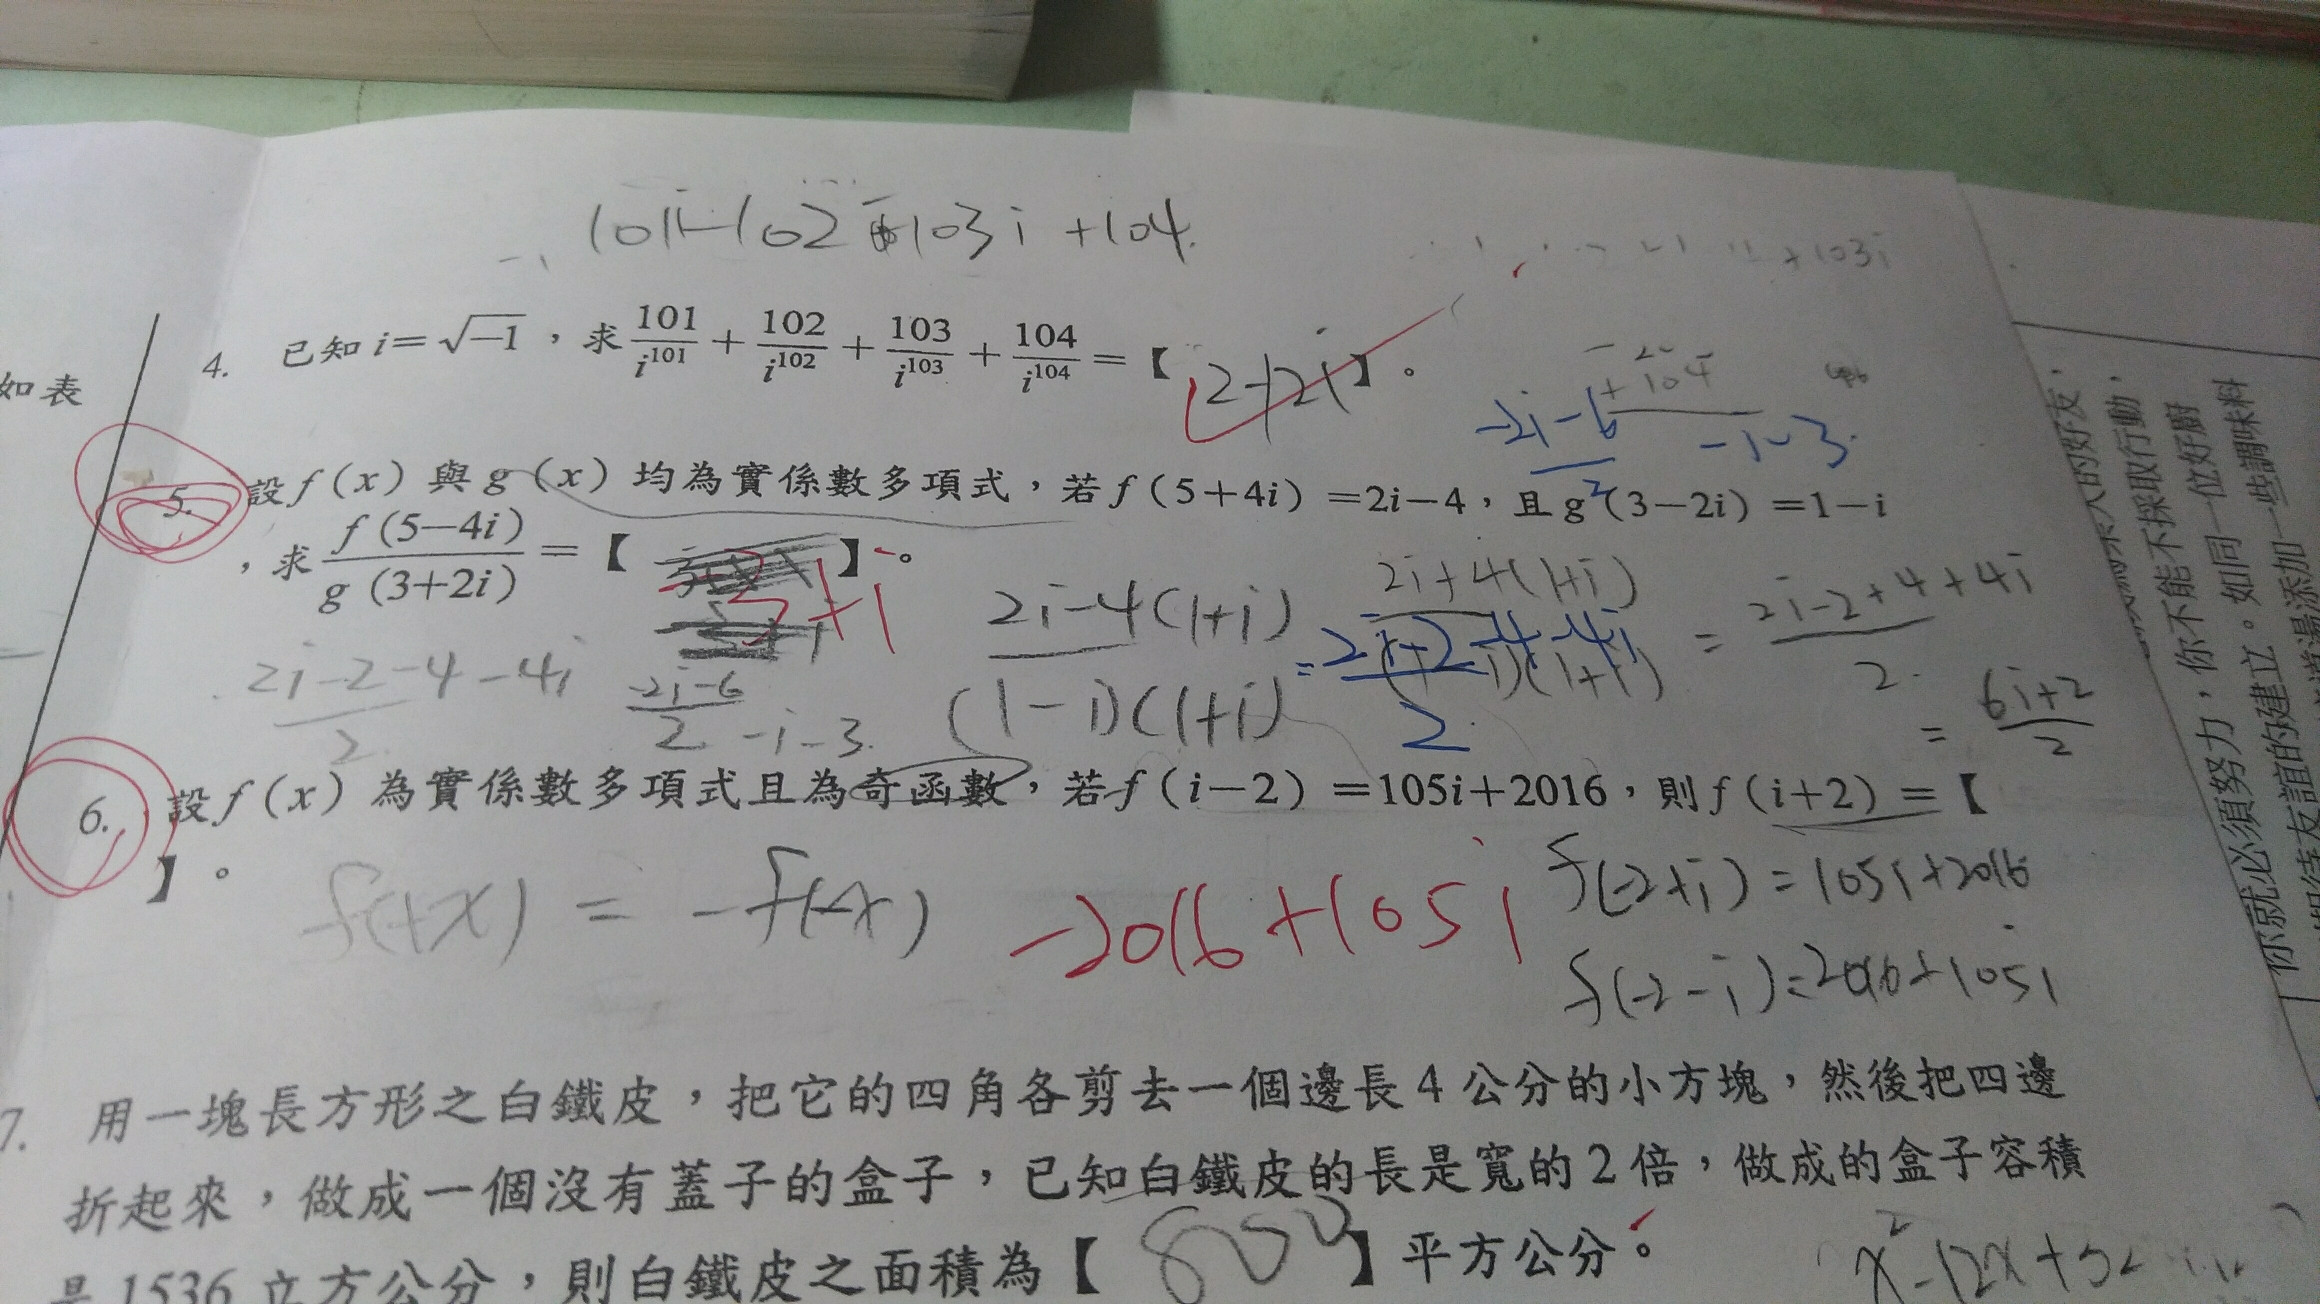 101i-102 103i +104.
+103i
4. 已知 i=√-1，求 101/i^101 + 102/i^102 + 103/i^103 + 104/i^104 =【 2+2i 】。
如表
104
-2i-6
-i-3.
5. 設 f(x) 與 g(x) 均為實係數多項式，若 f(5+4i)=2i-4，且 g(3-2i)=1-i
，求 f(5-4i)/g(3+2i) =【 】。
-3+i
2i-4(1+i)
(1-i)(1+i)
2i+4(1+i)
= 2i-2-4-4i
2
= 2i-2+4+4i
2.
= 6i+2
2
2i-2-4-4i
2.
-2i-6
2
-i-3.
6. 設 f(x) 為實係數多項式且為奇函數，若 f(i-2)=105i+2016，則 f(i+2)=【
】。
f(+x) = -f(-x)
-2016+105i
f(-2+i)=105i+2016
f(-2-i)=2016+105i
7. 用一塊長方形之白鐵皮，把它的四角各剪去一個邊長 4 公分的小方塊，然後把四邊
折起來，做成一個沒有蓋子的盒子，已知白鐵皮的長是寬的 2 倍，做成的盒子容積
是 1536 立方公分，則白鐵皮之面積為【 800 】平方公分。
x²-12x+32
的好友，
你不能不採取行動，
你就必須努力，你不能不採取行動，
友誼的建立。如同一位好廚
添加一些調味料